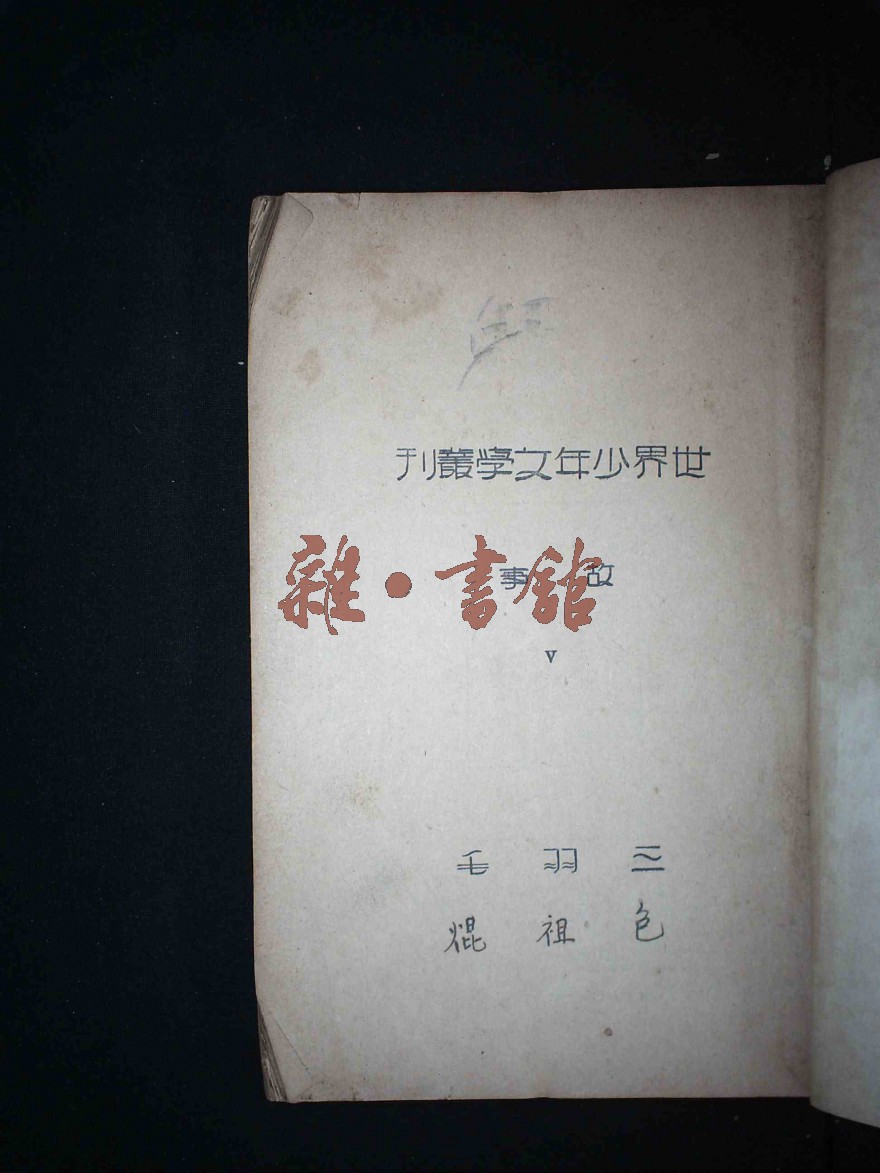 世界少年文學叢刊
故事
雜·書館
V
三羽毛
包祖焜